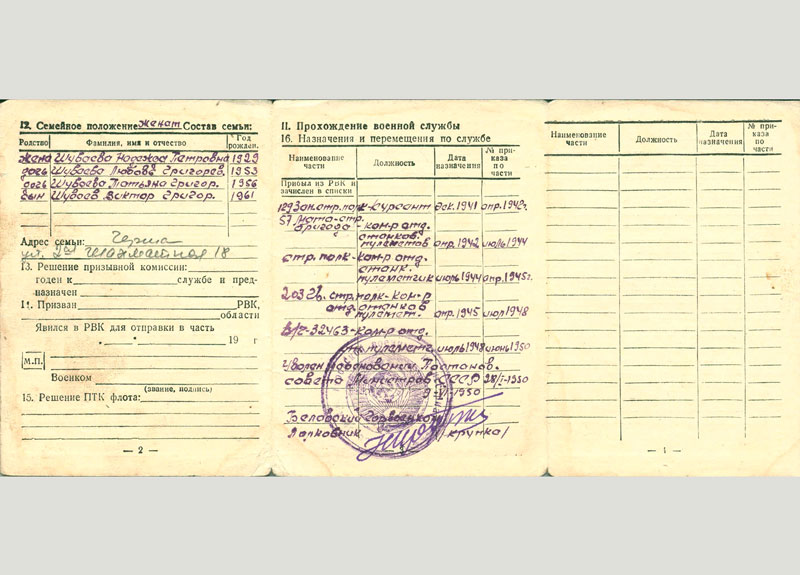 12. Семейное положение женат Состав семьи:
Родство
Фамилия, имя и отчество
Год рожден.
жена Шубаева Надежда Петровна 1929
дочь Шубаева Любовь Григорев. 1953
дочь Шубаева Татьяна Григор. 1956
сын Шубаев Виктор Григор. 1961
Адрес семьи:
ул. 18
13. Решение призывной комиссии:
годен к службе и пред-
назначен
14. Призван РВК,
области
Явился в РВК для отправки в часть
19 г
М.П.
Военком
(звание, подпись)
15. Решение ПТК флота:
— 2 —
II. Прохождение военной службы
16. Назначения и перемещения по службе
Наименование части
Должность
Дата назначения
№ при-каза по части
Прибыл из РВК и
зачислен в списки
129 Зап. стр. полк - курсант дек. 1941 апр. 1942г.
57 Мото-стр.
бригада - ком-р отд.
станков.
пулеметов апр. 1942 июль 1944
стр. полк - ком-р отд.
станк.
пулеметчик июль 1944 апр. 1945г.
203 Зв. стр. полк - ком-р
отд. станков
пулемет. апр. 1945 июл 1948
В/г-32463 - ком-р отд.
ст. пулемета. июль 1948 июнь 1950
Уволен на основании Постанов.
совета Министров СССР 28/I-1950
9-VI-1950
Горвоенком
Полковник /крупка/
Наименование части
Должность
Дата назначения
№ при-каза по части